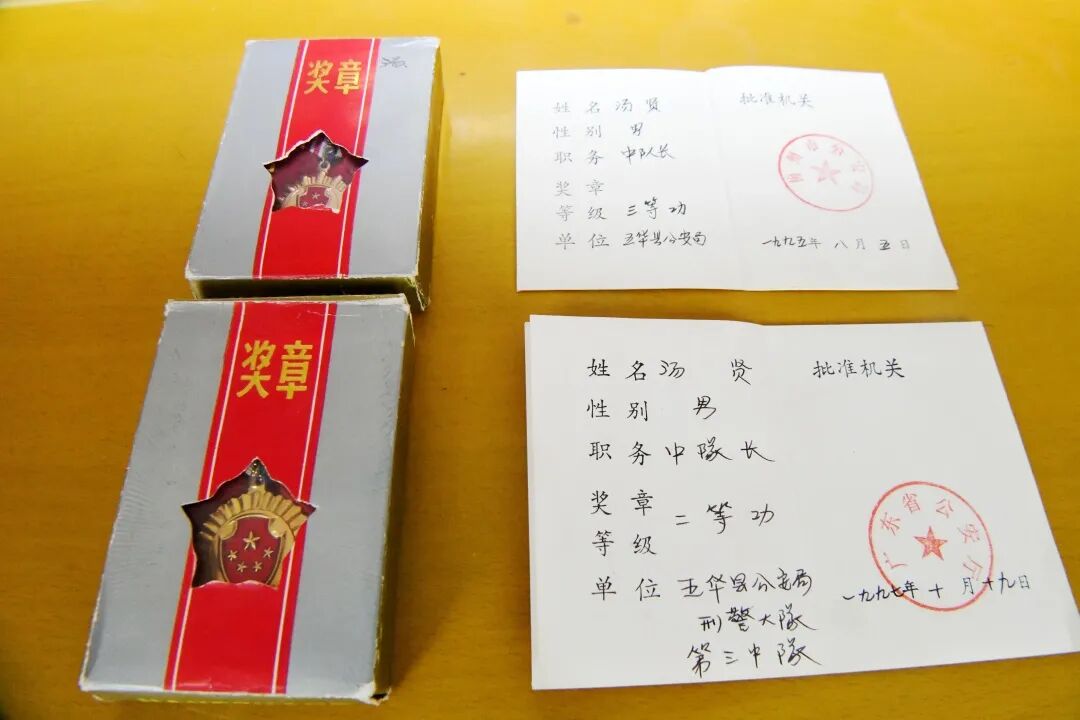 奖章
汤
姓名 汤贤
性别 男
职务 中队长
奖章
等级 三等功
单位 五华县公安局
批准机关
梅州市公安局
一九九五年八月五日
奖章
姓名 汤贤
性别 男
职务 中隊长
奖章
等级 二等功
单位 五华县公安局
刑警大隊
第三中隊
批准机关
广东省公安厅
一九九七年十月十九日